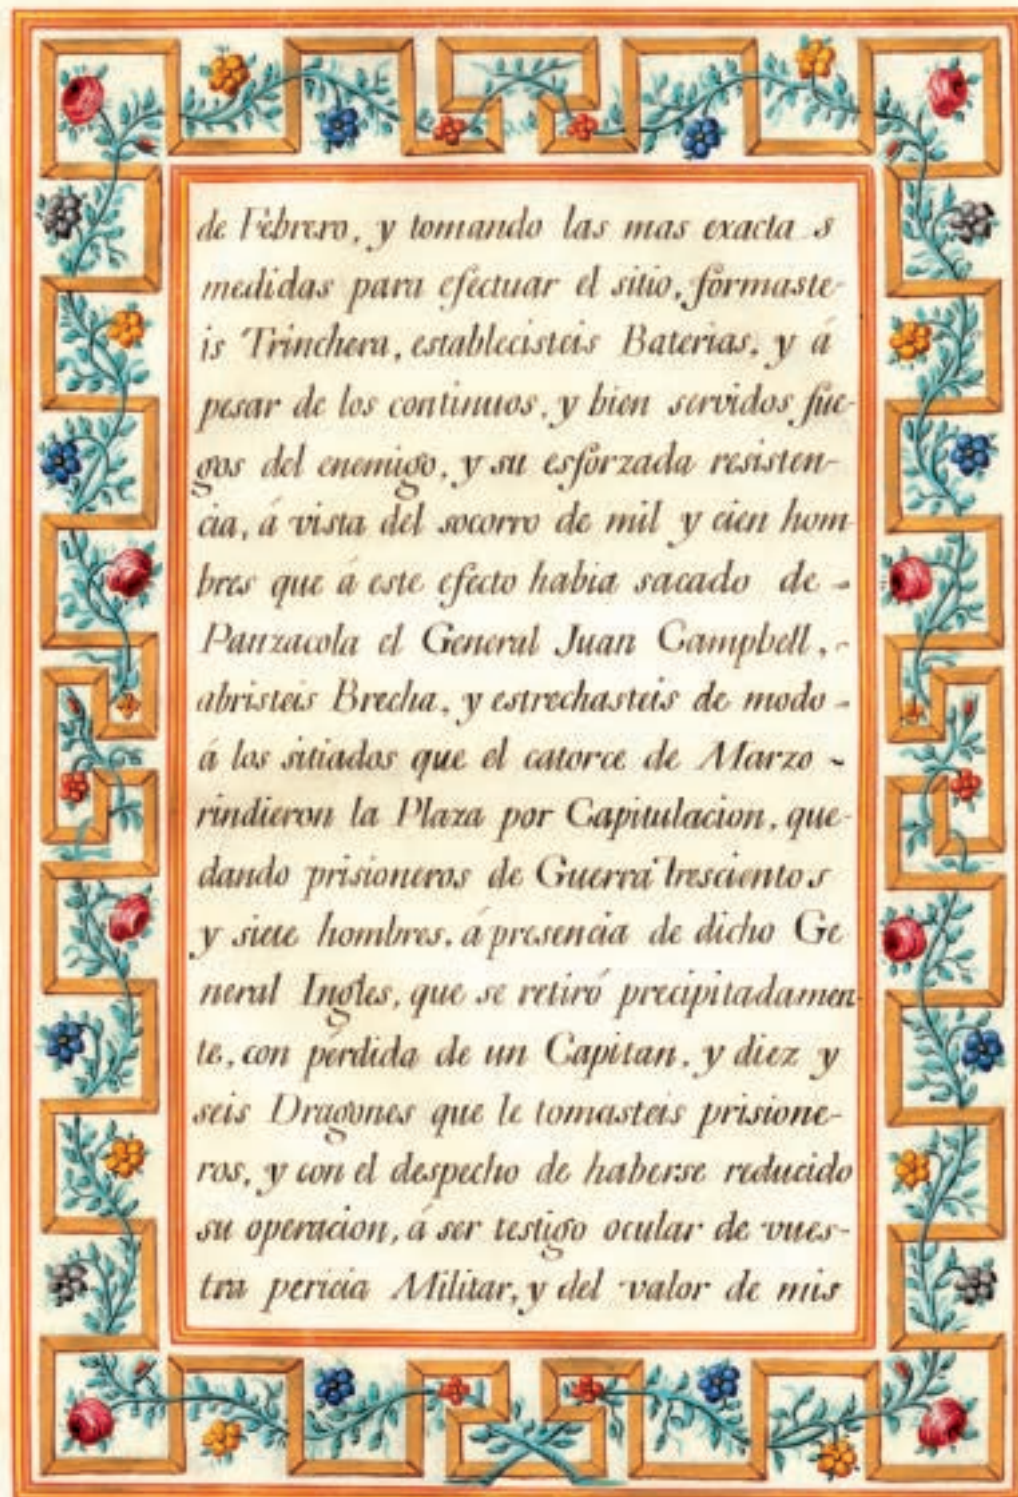 de Febrero, y tomando las mas exacta s
medidas para efectuar el sitio, formaste-
is Trinchera, establecisteis Baterias, y á
pesar de los continuos, y bien servidos fue-
gos del enemigo, y su esforzada resisten-
cia, á vista del socorro de mil y cien hom
bres que á este efecto habia sacado de -
Panzacola el General Juan Campbell, -
abristeis Brecha, y estrechasteis de modo -
á los sitiados que el catorce de Marzo -
rindieron la Plaza por Capitulacion, que-
dando prisioneros de Guerra trescientos
y siete hombres, á presencia de dicho Ge
neral Ingles, que se retiró precipitadamen-
te, con pérdida de un Capitan, y diez y
seis Dragones que le tomasteis prisione-
ros, y con el despecho de haberse reducido
su operacion, á ser testigo ocular de vues-
tra pericia Militar, y del valor de mis